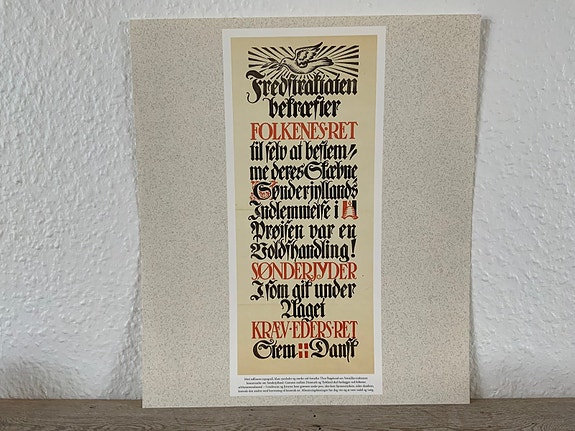 Fredstraktaten
bekræfter
FOLKENES·RET
til selv at bestem⸗
me deres Skæbne
Sønderjyllands
Indlemmelse i
Prøjsen var en
Voldshandling!
SØNDERJYDER
I som gik under
Aaget
KRAV·EDERS·RET
Stem Dansk